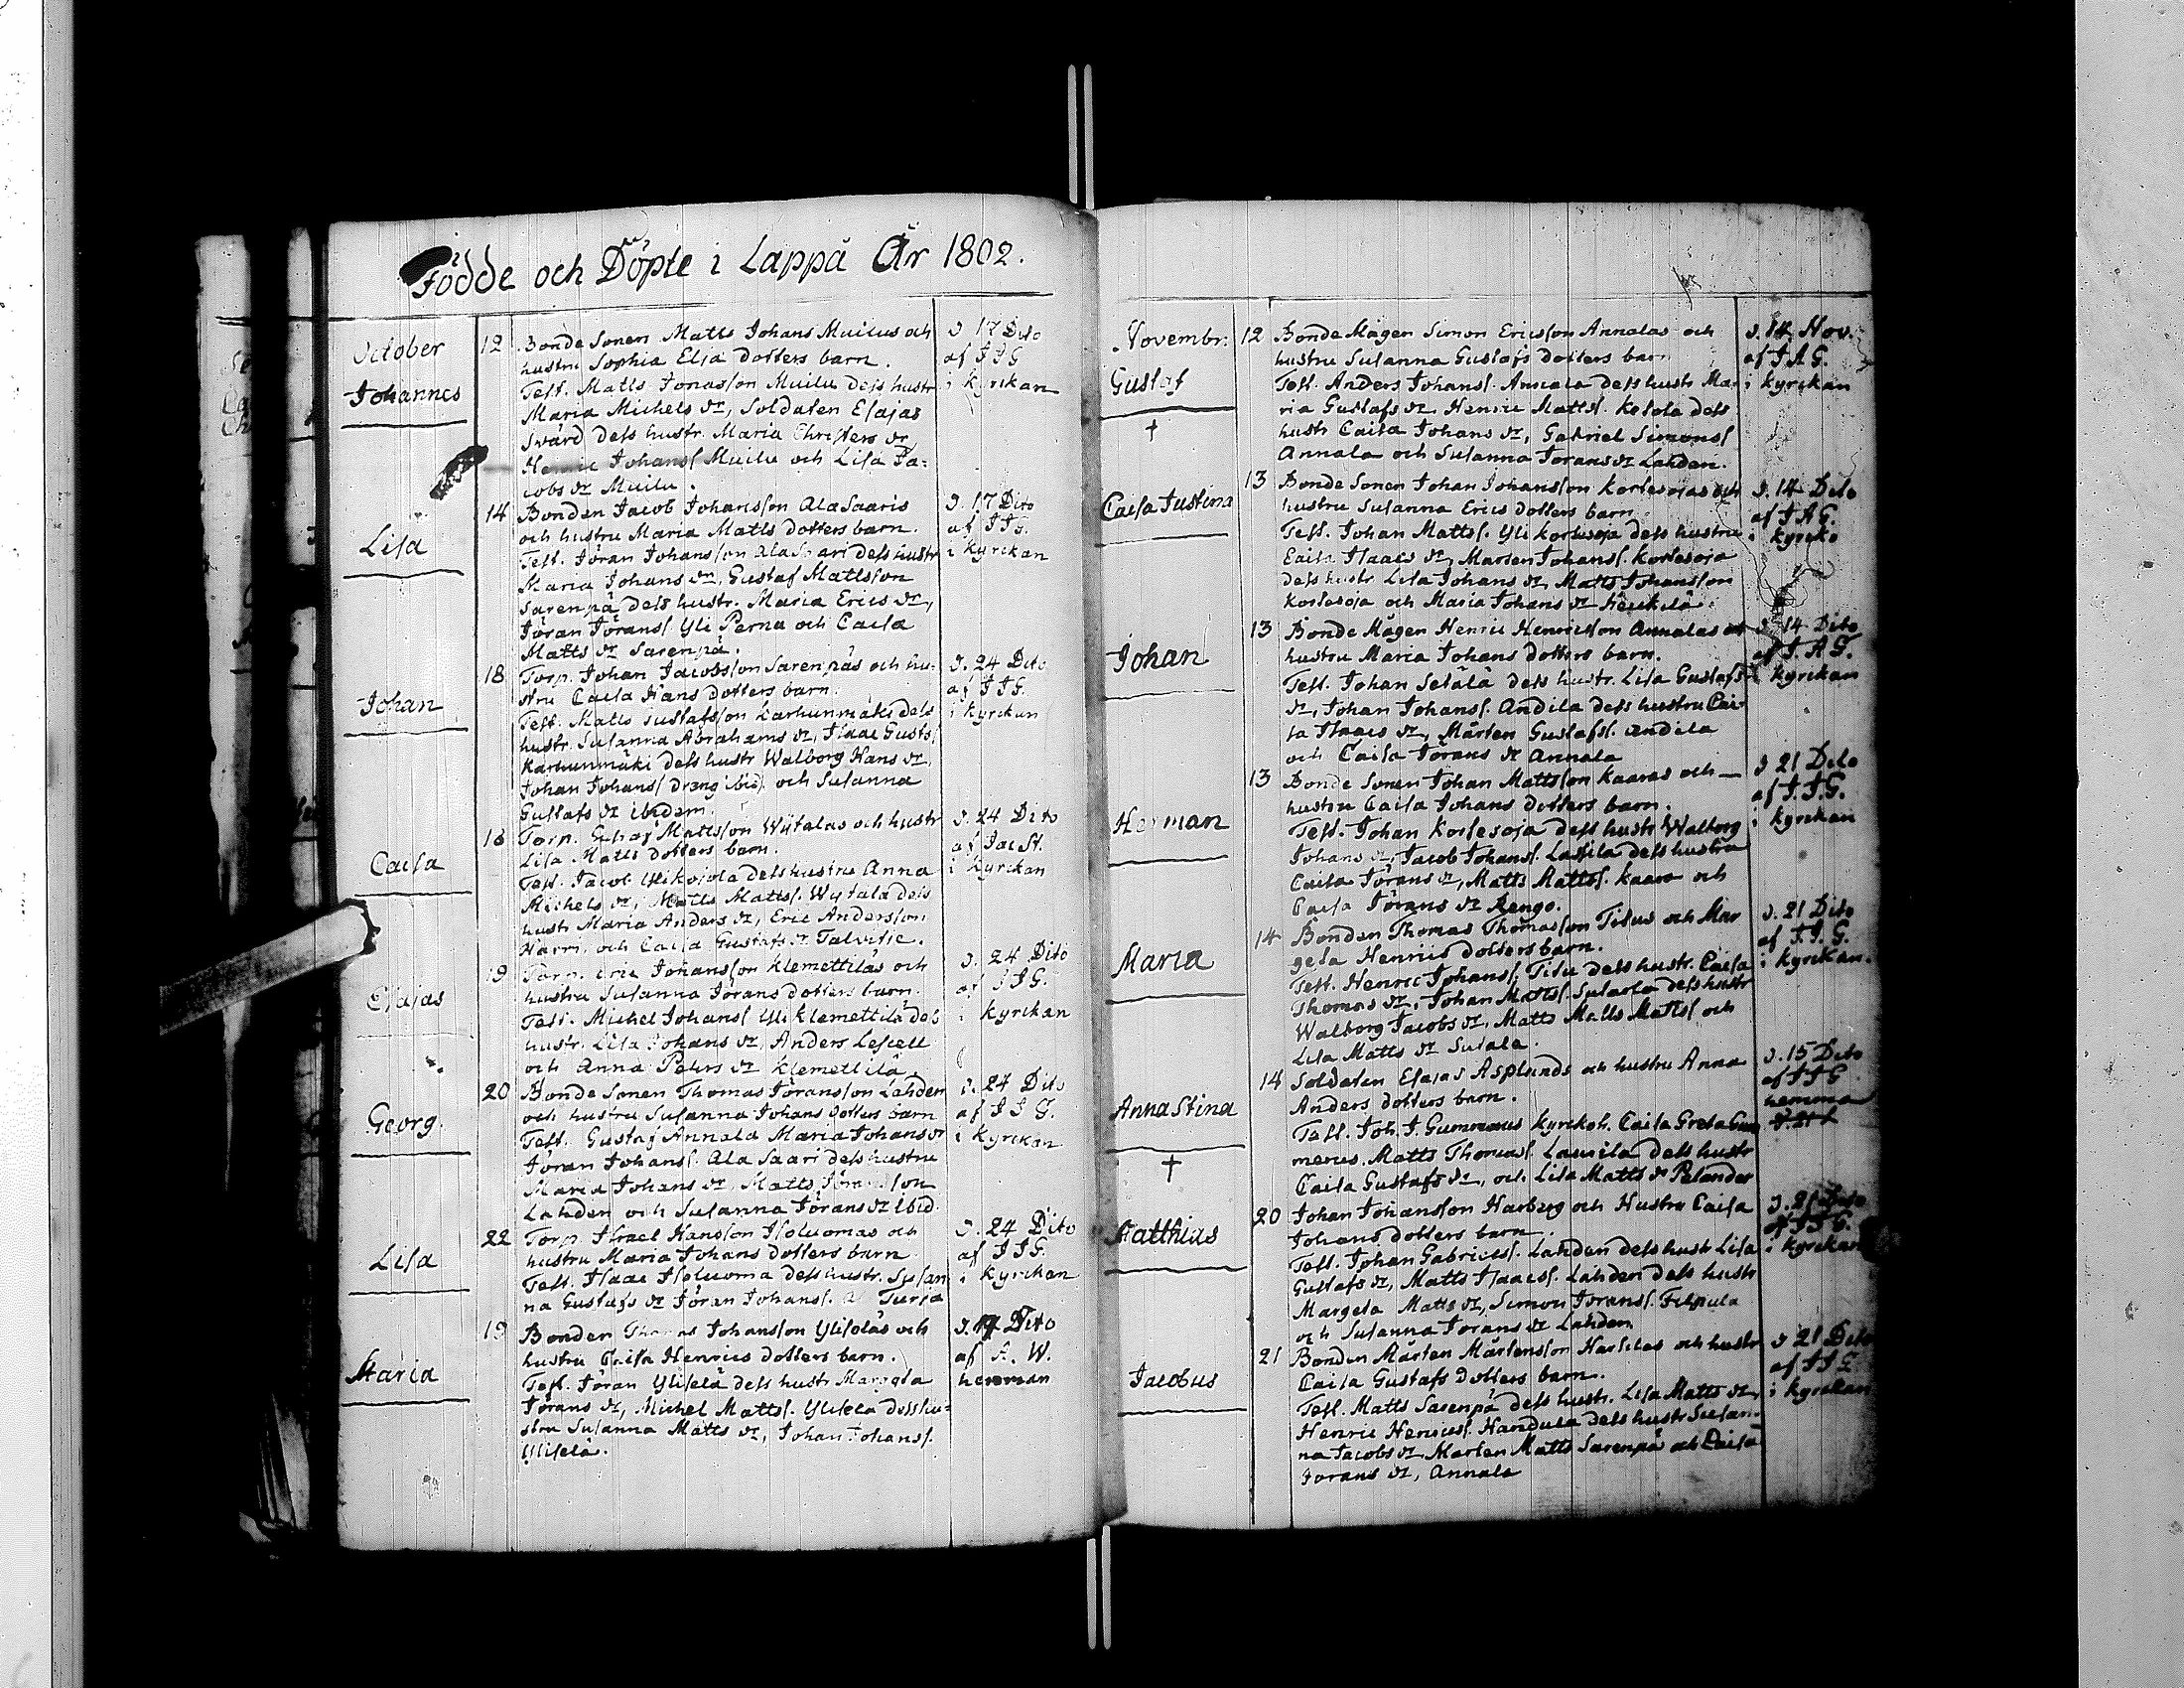 Födde och Döpte i Lappå År 1802.
October
Johannes
12
Bonde Sonen Matts Johans Muilus och
hustru Sophia Elsa dotters barn.
Test. Matts Jonasson Muilu dess hustr
Maria Michels dr, Soldaten Esajas
Swärd dess hustr. Maria Christers dr
Henric Johans Muilu och Lisa Ja=
cobs dr Muilu.
d 17 Dito
af J J G
i Kyrckan
Lisa
14
Bonden Jacob Johansson AlaSaaris
och hustru Maria Matts dotters barn.
Test. Jöran Johansson AlaSaari dess hustr
Maria Johans dr, Gustaf Mattsson
Sarenpä dess hustr. Maria Erics dr,
Jöran Jörans Yli Perna och Caisa
Matts dr Sarenpä.
d. 17 Dito
af J J G.
i Kyrckan
Johan
18
Torp. Johan Jacobsson Sarenpäs och hu-
stru Caisa Hans dotters barn.
Test. Matts Gustafsson Karhunmäki dess
hustr. Susanna Abrahams dr, Isaac Gusts
Karhunmäki dess hustr Walborg Hans dr
Johan Johans dräng ibid. och Susanna
Gustafs dr ibidem.
d. 24 Dito
af J J G.
i kyrckan
Caisa
18
Torp. Mattsson Wytalas och hustr
Lisa Matts dotters barn.
Test. Jacob Ylikojola dess hustru Anna
Michels dr, Matts Matts. Wytala dess
hustr Maria Anders dr, Eric Andersson
Harri, och Caisa Gustafs dr Talvitie.
d. 24 Dito
af Jac St.
i Kyrckan
Esajas
19
Torp. Eric Johansson Klemettiläs och
hustru Susanna Jörans dotters barn.
Test. Michel Johans Yli Klemettilä dess
hustr. Lisa Johans dr, Anders Lescell
och Anna Peters dr Klemettilä.
d. 24 Dito
af J J G.
i Kyrckan
Georg.
20
Bonde Sonen Thomas Jöransson Lahden
och hustru Susanna Johans dotters barn
Test. Gustaf Annala Maria Johans dr
Jöran Johans. Ala Saari dess hustru
Maria Johans dr, Matts Jöransson
Lahden och Susanna Jörans dr ibid.
d. 24 Dito
af J J G.
i Kyrckan
Lisa
22
Torp Israel Hansson Isoluomas och
hustru Maria Johans dotters barn
Test. Isaac Isoluoma dess hustr. Susan
na Gustafs dr Jöran Johans. Turja
d. 24 Dito
af J J G.
i Kyrckan
Maria
19
Bonden Thomas Johansson Yliseläs och
hustru Caisa Henrics dotters barn.
Test. Jöran Yliselä dess hustr Margeta
Jörans dr, Michel Matts. Yliselä dess hu=
stru Susanna Matts dr, Johan Johans.
Yliselä.
d. 19 Dito
af A. W.
hemman
Novembr:
Gustaf
†
12
Bonde Mågen Simon Ericsson Annalas och
hustru Susanna Gustafs dotters barn
Test. Anders Johans. Annala dess hustr Ma-
ria Gustafs dr Henric Matts. Ketola dess
hustr Caisa Johans dr, Gabriel Simons
Annala och Susanna Jörans dr Lahden.
d. 14 Nov.
af J A G.
i kyrckan
Caisa Justina
13
Bonde Sonen Johan Johansson Kortesojas och
hustru Susanna Erics dotters barn
Test. Johan Matts. Yli Kortesoja dess hustru
Caisa Isaacs dr, Marten Johans. Kortesoja
dess hustr Lisa Johans dr, Matts Johansson
Kortesoja och Maria Johans dr Heickilä.
d. 14 Dito
af J A G.
i kyrcko
Johan
13
Bonde Mågen Henric Henricsson Annalas
hustru Maria Johans dotters barn.
Test. Johan Setälä dess hustr. Lisa Gustafs
dr, Johan Johans. Andila dess hustru Cai-
sa Isaacs dr, Mårten Gustafs. Andila
och Caisa Jörans dr Annala
d. 14 Dito
af J. A G.
i kyrckan
Herman
13
Bonde Sonen Johan Mattsson Kaaras och —
hustru Caisa Johans dotters barn.
Test. Johan Kortesoja dess hustr Walborg
Johans dr, Jacob Johans. Lassila dess hustru
Caisa Jörans dr, Matts Matts. Kaara och
Caisa Jörans dr Rengo.
d 21 Dito
af J. J G.
i kyrckan
Maria
14
Bonden Thomas Thomasson Titus och Mar
geta Henrics dotters barn.
Test. Henric Johans. Titu dess hustr. Caisa
Thomas dr, Johan Matts. Sulasla dess hustr
Walborg Jacobs dr, Matts Matts Matts och
Lisa Matts dr Sulala.
d. 21 Dito
af J. J. G.
i kyrckan.
Anna Stina
†
14
Soldaten Esajas Asplunds och hustru Anna
Anders dotters barn.
Test. Joh. J. Gummerus kyrckoh. Caisa Greta Gum
merus. Matts Thomas. Laurila dess hustr
Caisa Gustafs dr, och Lisa Matts dr Pelander
d. 15 Dito
af J J G
hemma
Matthias
20
Johan Johansson Harberg och Hustru Caisa
Johans dotters barn.
Test. Johan Gabriels. Lahden dess hustr Lisa
Gustafs dr, Matts Isaacs. Lahden dess hustr
Margeta Matts dr, Simon Jörans. Filpula
och Susanna Jörans dr Lahden
d. 21 Dito
af J J G.
i kyrckan
Jacobus
21
Bonden Mårten Mårtensson Harsilas och hustr
Caisa Gustafs dotters barn.
Test. Matts Sarenpä dess hustr. Lisa Matts dr,
Henric Henrics. Handula dess hustr Susan-
na Jacobs dr Marten Matts Sarenpä och Caisa
Jorans dr, Annala
d 21 Dito
af J J G
i kyrckan